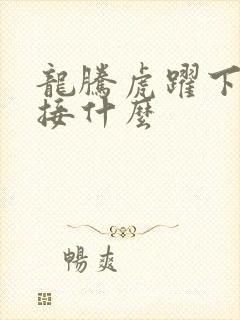 龍騰虎躍下
接什麼
暢爽